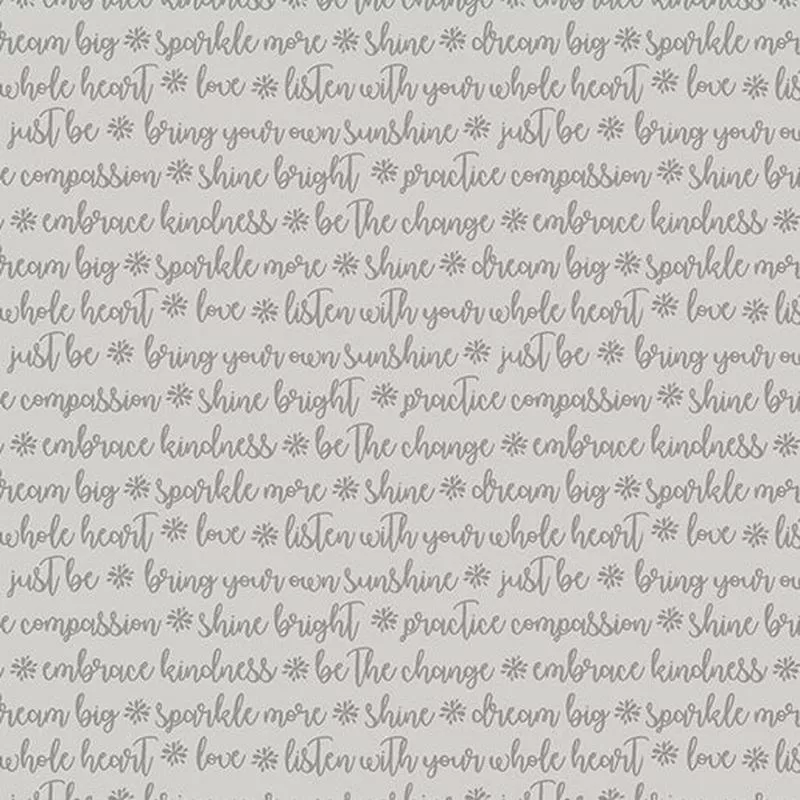 embrace kindness * be the change * embrace kindness *
ream big * sparkle more * shine * dream big * sparkle mor
whole heart * love * listen with your whole heart * love * lis
just be * bring your own sunshine * just be * bring your ow
e compassion * shine bright * practice compassion * shine bri
* embrace kindness * be the change * embrace kindness *
ream big * sparkle more * shine * dream big * sparkle mor
whole heart * love * listen with your whole heart * love * lis
just be * bring your own sunshine * just be * bring your ow
e compassion * shine bright * practice compassion * shine bri
* embrace kindness * be the change * embrace kindness *
ream big * sparkle more * shine * dream big * sparkle mor
whole heart * love * listen with your whole heart * love * lis
just be * bring your own sunshine * just be * bring your ow
e compassion * shine bright * practice compassion * shine bri
* embrace kindness * be the change * embrace kindness *
ream big * sparkle more * shine * dream big * sparkle mor
whole heart * love * listen with your whole heart * love * lis
just be * bring your own sunshine * just be * bring your ow